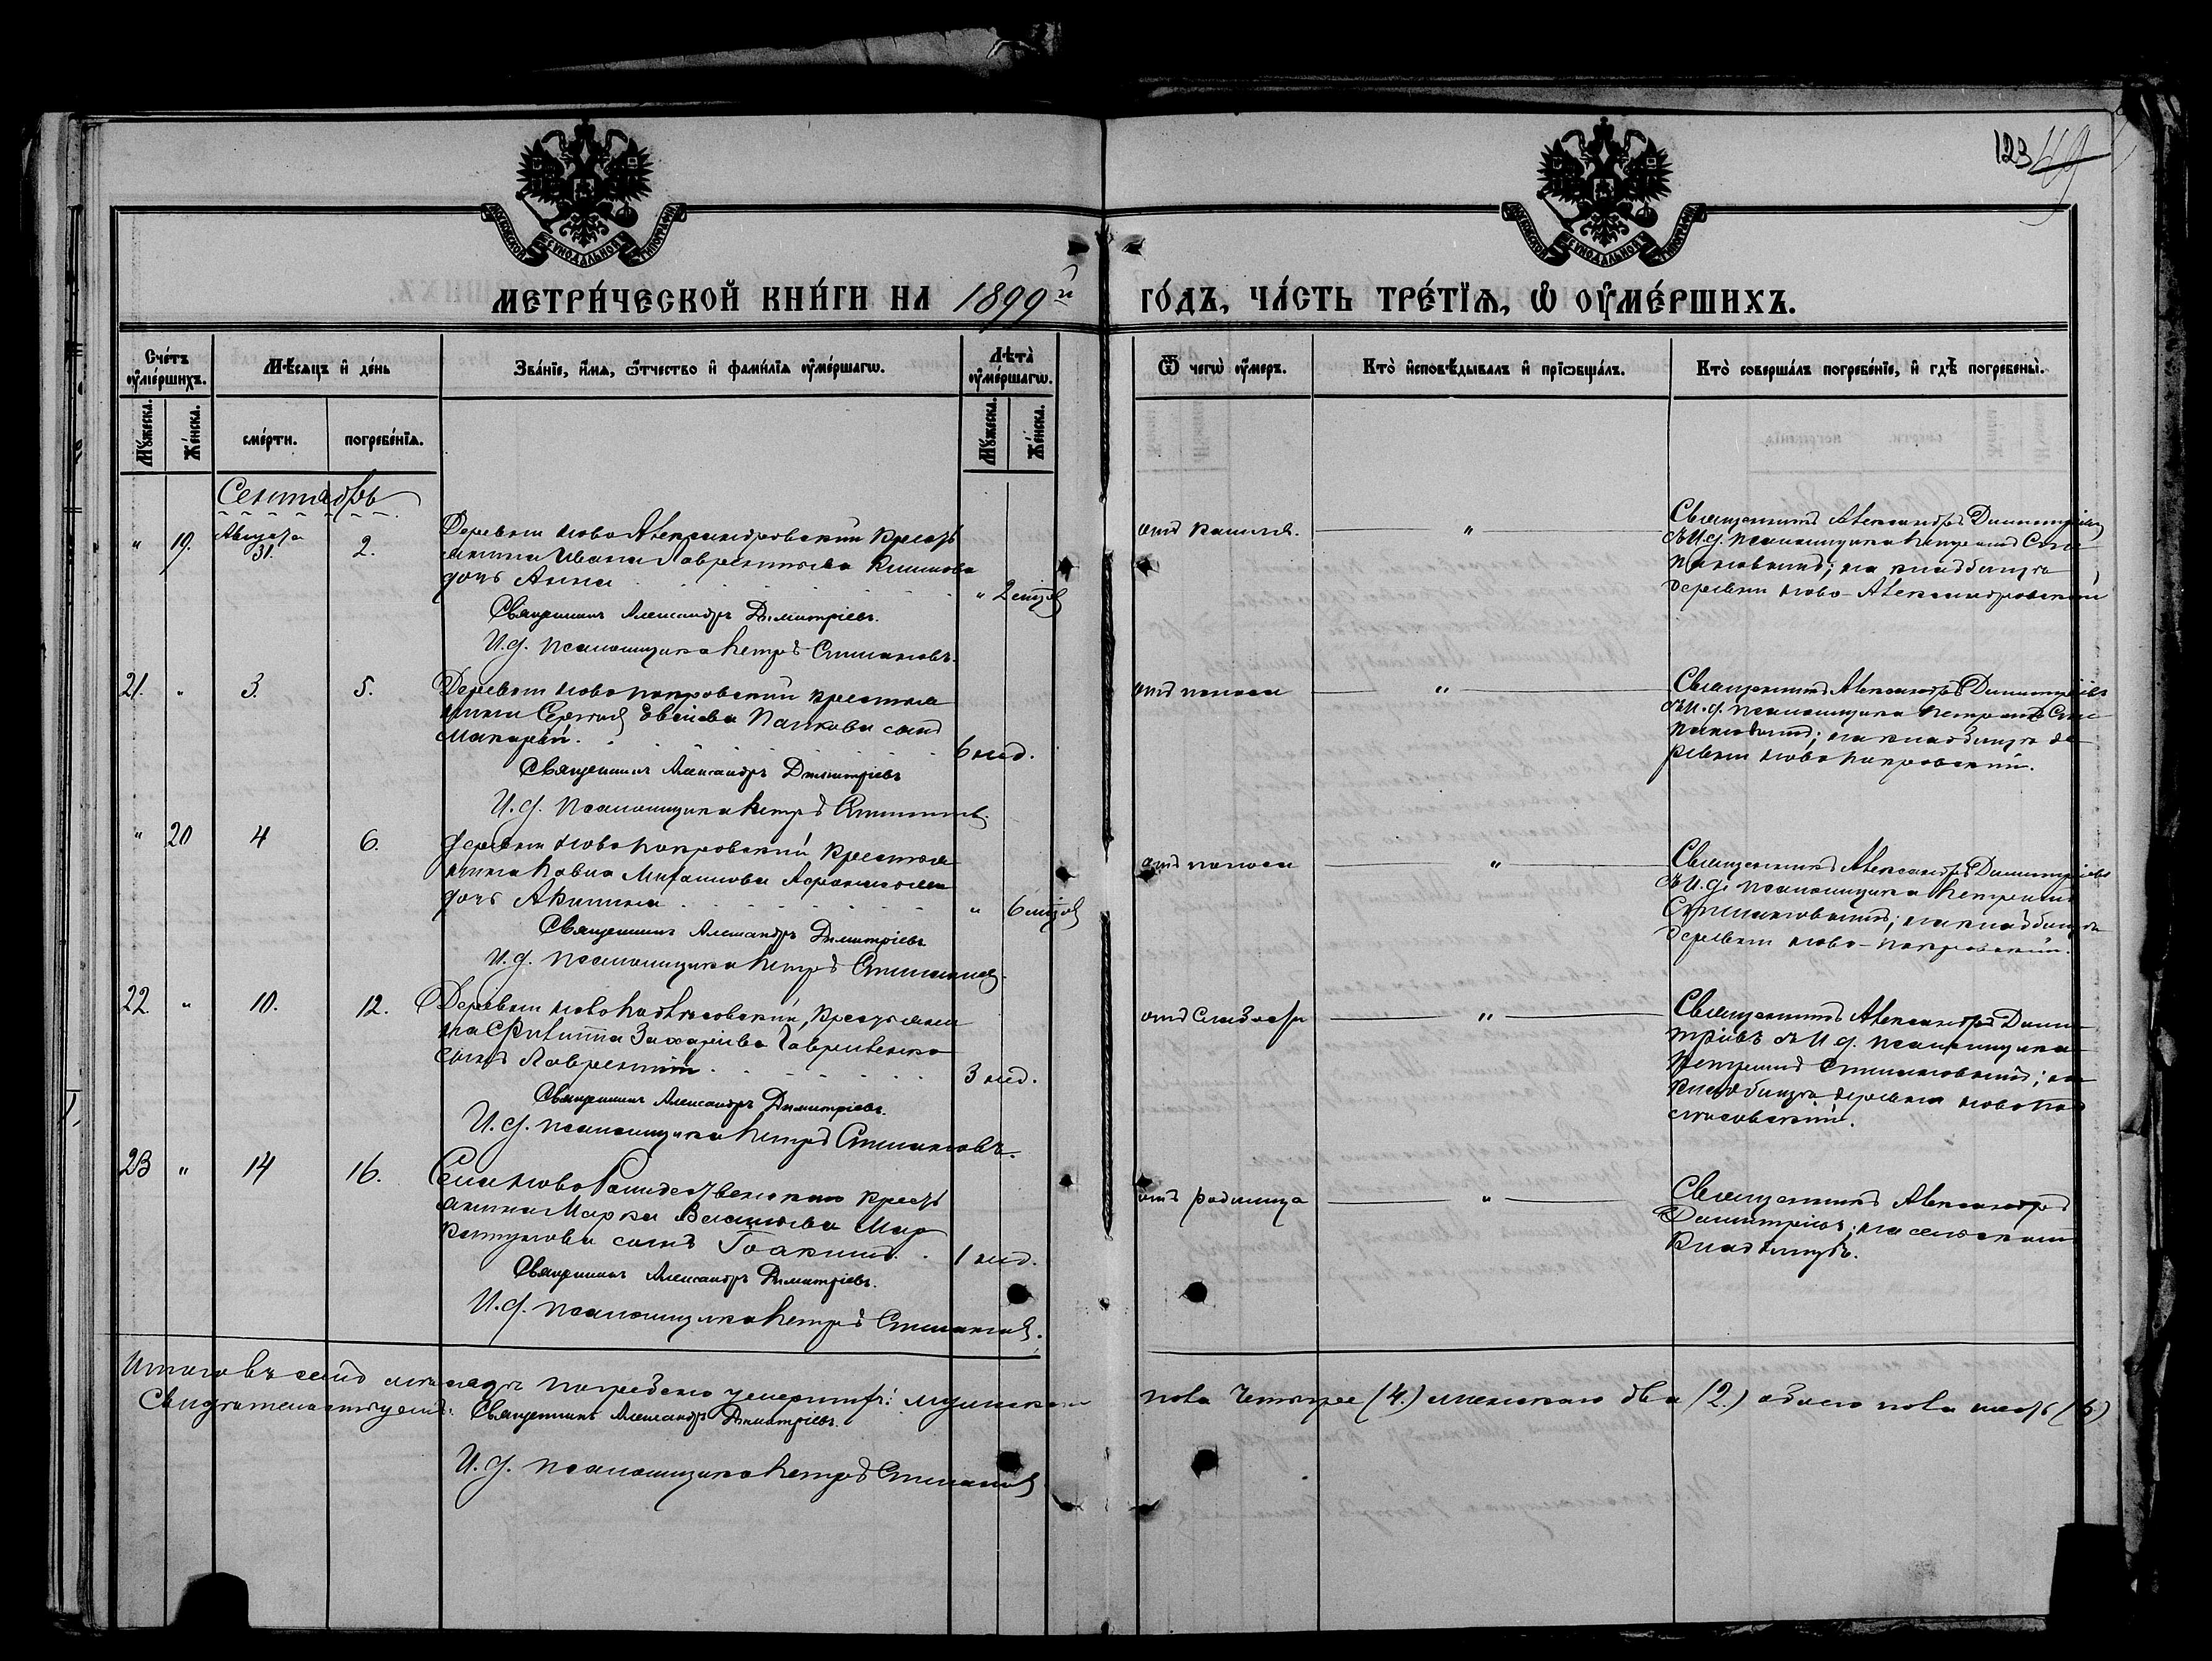 123 49
МОСКОВСКОЙ СѴНОДАЛЬНОЙ ТИПОГРАФІИ
МОСКОВСКОЙ СѴНОДАЛЬНОЙ ТИПОГРАФІИ
МЕТРИ́ЧЕСКОЙ КНИ́ГИ НА 1899й ГО́ДЪ, ЧА́СТЬ ТРЕ́ТІѦ, Ѽ ОУМЕ́РШИХЪ.
Сче́тъ оумершихъ.
Мѣсяцъ и де́нь
Зва́ніе, и́мѧ, ѻтчество и фами́лїѧ оумершагѡ.
Лѣта̀ оумершагѡ.
Ѿ чегѡ̀ оумеръ.
Кто̀ исповѣдывалъ и прїѡбща́лъ.
Кто̀ соверша́лъ погребе́нїе, и гдѣ̀ погребены̀.
Мꙋжеска.
Же́нска.
сме́рти.
погребе́нїѧ.
Мꙋжеска.
Же́нска.
Сентябрь
" 19. Августа 31. 2.
Деревни Ново Александровской кресть
янина Ивана Лаврентьева Климова
дочь Анна " 2 мцев
Священникъ Александръ Димитріевъ.
И. д. псаломщика Петръ Степановъ.
отъ кашля. "
Священникъ Александръ Димитріевъ
съ И. д. псаломщика Петромъ Сте
пановымъ; на кладбищѣ
деревни Ново-Александровской
21. " 3. 5.
Деревни Ново Покровской крестья
нина Сергѣя Евсіева Панкова сынъ
Макарій. 6 нед.
Священникъ Александръ Димитріевъ
И. д. псаломщика Петръ Степановъ.
отъ поноса "
Священникъ Александръ Димитріевъ
съ И. д. псаломщика Петромъ Сте
пановымъ; на кладбищѣ де
ревни Ново Покровской.
" 20 4 6.
Деревни Ново Покровской крестья
нина Павла Михаилова дочь Акилина " 6 мцев
Священникъ Александръ Димитріевъ
И. д. псаломщика Петръ Степановъ.
отъ поноса "
Священникъ Александръ Димитріевъ
съ И. д. псаломщика Петромъ
Степановымъ; на кладбищѣ
деревни Ново-Покровской.
22. " 10. 12.
Деревни Ново крестьяни
на Филиппа Захаріева Гавриленко
сынъ Лаврентій. 3 нед.
Священникъ Александръ Димитріевъ.
И. д. псаломщика Петръ Степановъ.
отъ слабости "
Священникъ Александръ Дими
тріевъ съ И. д. псаломщика
Петромъ Степановымъ; на
кладбищѣ деревни Ново
23 " 14 16.
Села Ново Рождественскаго кресть
янина Марка Васильева сынъ Іоакимъ. 1 нед.
Священникъ Александръ Димитріевъ.
И. д. псаломщика Петръ Степановъ.
отъ родимца "
Священникъ Александръ
Димитріевъ; на сельскомъ
кладбищѣ.
Итого въ семъ мѣсяцѣ погребено умершихъ: мужеска пола четыре (4.) женскаго два (2.) обоего пола шесть (6.)
Свидѣтельствуемъ: Священникъ Александръ Димитріевъ.
И. д. псаломщика Петръ Степановъ